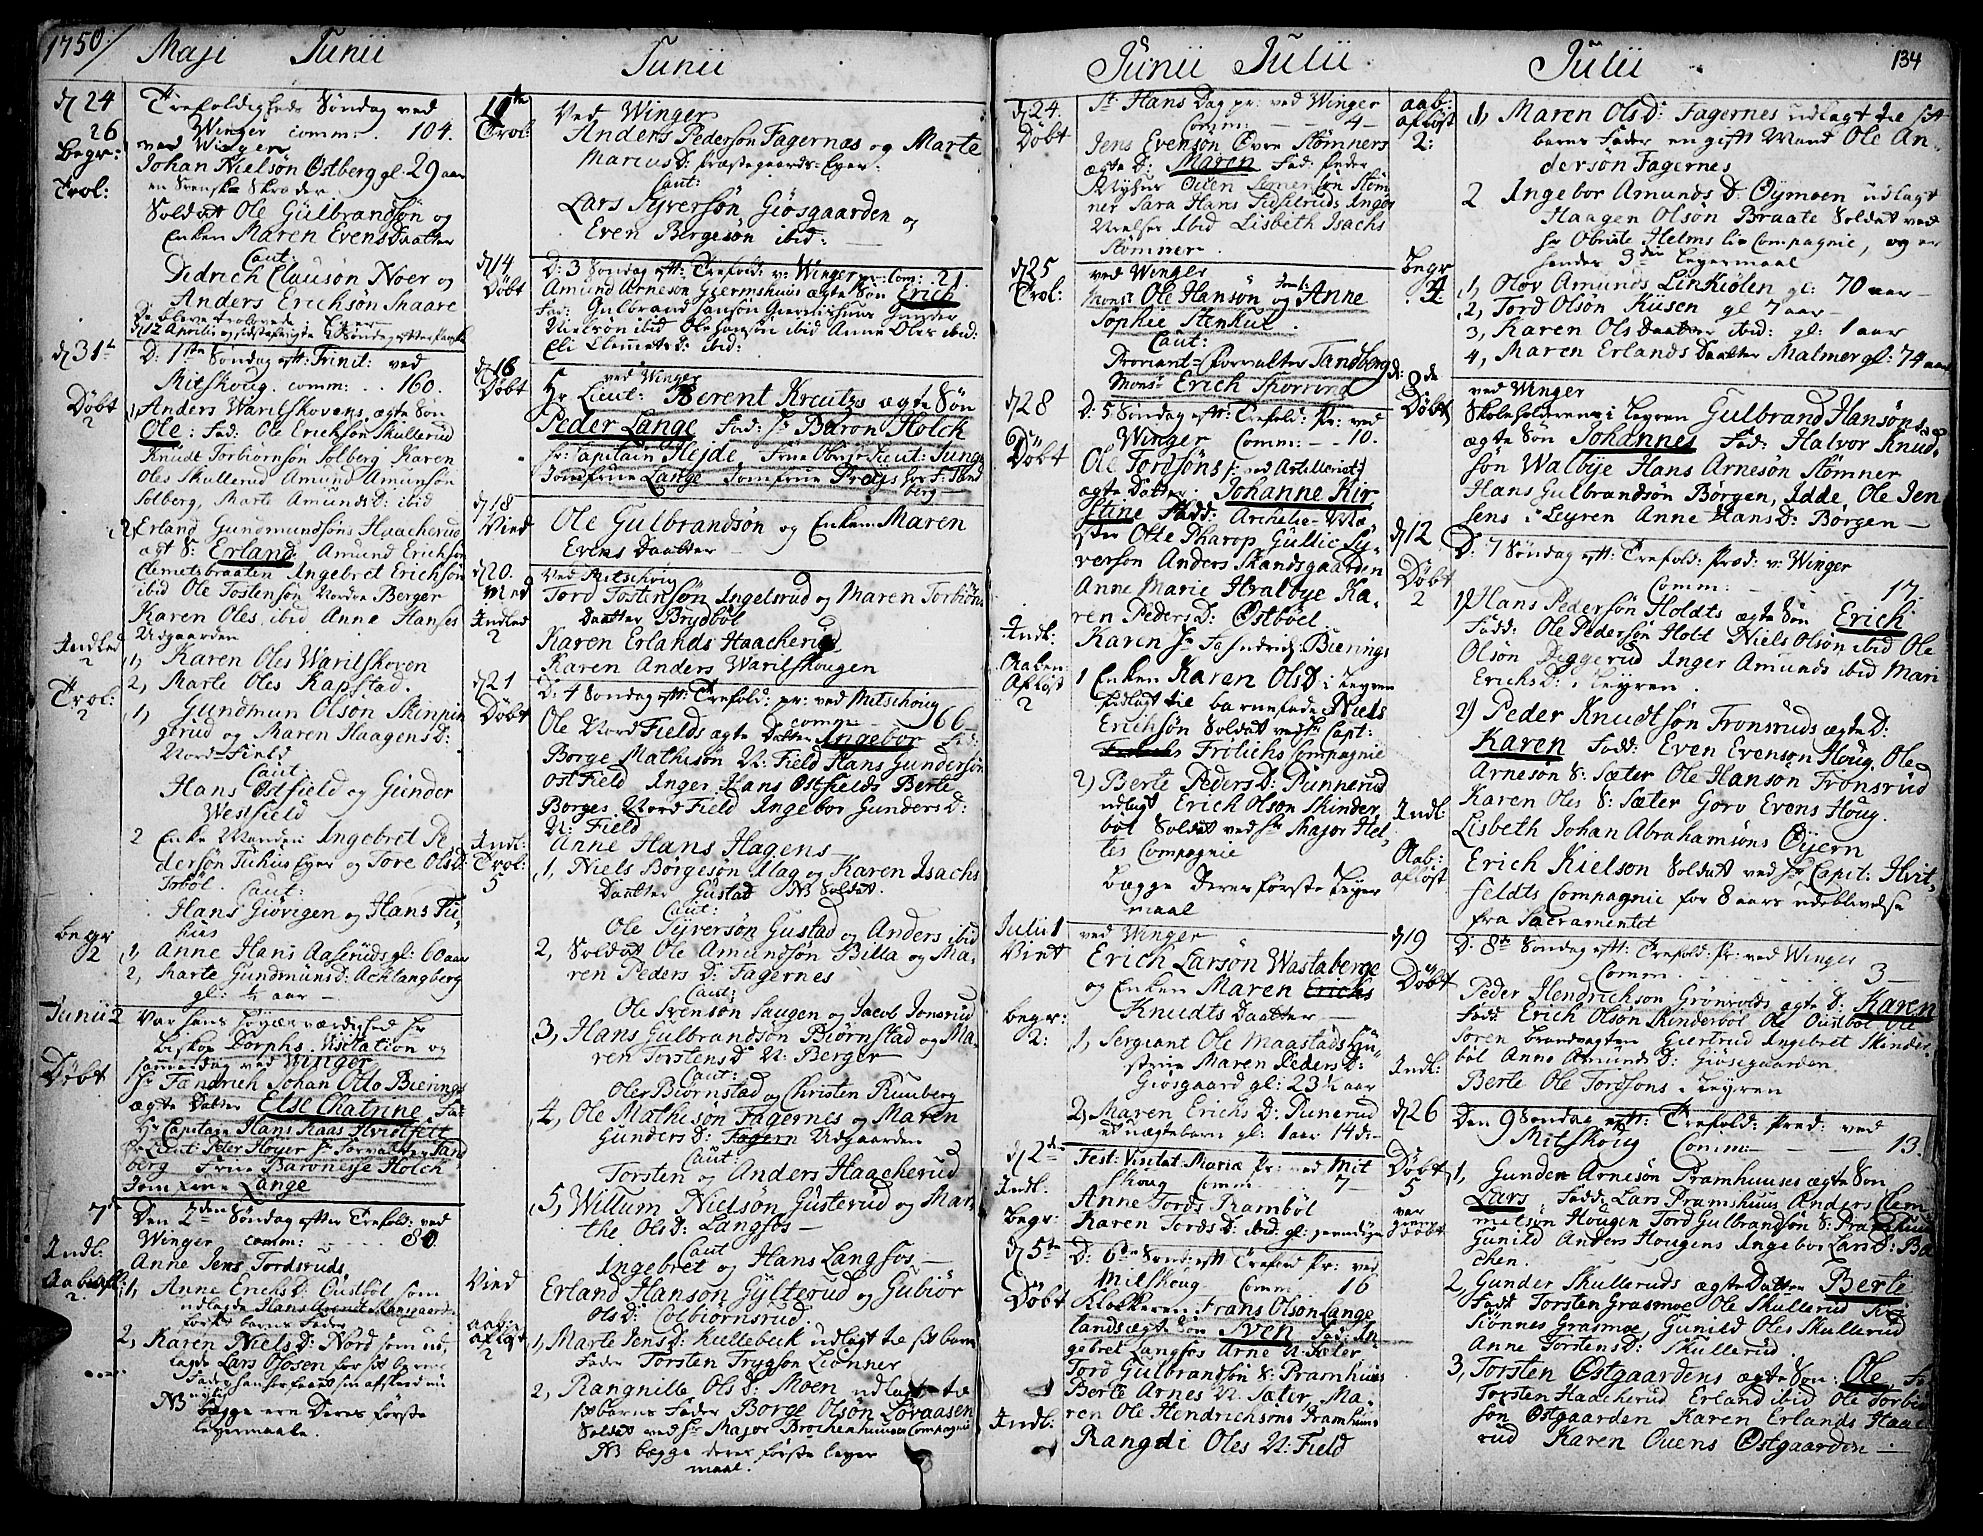 1750/ Maji Junii
d 24 Trefoldigheds Søndag ved
Winger comm: 104.
26 ved Winger
Begr: Johan Nielsön Östberg gl: 29 aar
en Svensk Skræder
Trol: Soldat Ole Gulbrandsön og
Enken Maren Evens Daatter
Caut:
Didrich Clausön Noer og
Anders Erichsön Skaare
De bleve trolovede
d 31t D: 1ste Søndag eftt: Trinit: ved
Mitskoug. comm: . . 160.
Döbt 2
1, Anders Warilskovens ægte Sön
Ole: Fad: Ole Ericksön Skullerud
Knudt Torbiornsön Solberg Karen
Oles Skullerud Amund Amunsön
Solberg, Marte Amunds D: ibid
2, Erland Gundmundsöns Haacherud
ægt S: Erland Amund Erichsön
Clemetsbraaten Ingebret Erichsön
ibid Ole Tostensön Nordre Berger
Karen Oles ibid Anne Hanses
Udgaarden
Indled 2
1, Karen Oles Warilskoven
2, Marte Oles Kapstad.
Trol: 2
1, Gundmun Olson Skinpin
gerud og Maren Haagens D:
Nord-Field
Caut
Hans Ostfield og Gunder
Westfield
2 Enke Manden Ingebret Pe
dersön Tuhus Eger og Tore Ols D:
Torböl. Caut:
Hans Giövigen og Hans Tu
hus
begr 2
1, Anne Hans Aaseruds gl: 60 aar
2, Marte Gundmuns D: Acklangberg
gl: ½ aar —
Junii 2 Var hans Höyærværdighed Hr
Biskop Dorphs Visitation og
ved Winger
Döbt Hr Fændrich Johan Otto Bierings
ægte Datter Else Chatrine Fad
Hr Capitain Hans Kaas Hvidtfelt
Hr Lieut Peter Höyer Hr Forvalter Tand
berg Frue Baronesse Holck
Jomfrue Lange
7 Den 2den Søndag efter Trefold: ved
Winger comm: 80.
Indl: Anne Jens Tordsruds
Aabenafl: 2.
1, Anne Erichs D: Oustböl som
udlagde
barns Fader
2, Karen Niels D: Nord som ud,
lagde Lars Oposen for sit
NB begge ere Deres förste
leyermaale.
Junii
11te Ved Winger
Trol: Anders Pedersön Fagernæs og Marte
Marius D: Præstegaards-Eger.
Caut:
Lars Syversön Giösgaarden og
Even Börgesön ibid: —
d 14 D: 3 Søndag eftt: Trefold: v: Winger pr: Com: 21.
Döbt Amund Arnesön Gjermshuus ægte Sön Erich
Fad: Gulbrand Hansön Giermshuus Gunder
Nielsön ibid Ole Hansön ibid Anne Oles ibid:
Eli Clemets D: ibid:
d 16 ved Winger
Döbt Hr Lieut: Berent Kreutzs ægte Sön
Peder Lange Fad: Hr Baron Holck
Hr: Capitain Hejde Frue Oberst Lieut: Junge
Jomfrue Lange Jomfrue Preys Forv: Tand
berg —
d 18 Vied Ole Gulbrandsön og Enken Maren
Evens Daatter —
d 20. Ved Mitschoug
Vied Tord Tostensön Ingelsrud og Maren Torbiöns
Daatter Brydböl
Indled 2
Karen Erlands Haacherud
Karen Anders Warilskougen
d 21 D: 4 Søndag eftt: Trefold: pr: ved Mitschoug
comm 166.
Döbt Ole Nord Fields ægte Datter Ingebor Fad:
Borge Mathisön N: Field Hans Gundersön
Ost Field Inger Hans Ostfields Berte
Borges Nord Field Ingebor Gunders D:
N: Field
Indl: Anne Hans Hagens
Trol: 5
1, Niels Börgesön Ulag og Karen Isachs
Daatter Gustad NB Soldat.
Caut:
Ole Syversön Gustad og Anders ibid
2, Soldat Ole Amundsön Billa og Ma,
ren Peders D: Fagernes
Caut:
Ole Svensön Saugen og Jacob Jonsrud
3, Hans Gulbrandsön Biörnstad og Ma,
ren Torstens D: N: Berger
Caut:
Oles Biornstad og Christen Rumberg
4, Ole Mathisön Fagernes og Maren
Gunders D: Udgaarden
Caut
Torsten og Anders Haacherud
5, Willum Nielsön Gusterud og Mar,
the Ols D: Langfos —
Caut
Ingebret og Hans Langfos —
Vied Erland Hansön Gylterud og Gubiör
Ols D: Colbiörnsrud.
aab: afløst 2
1, Marte Jens D: Kullebeck udlagt til sit barn
Fader Torsten Trygsön Lionner
2, Rangnille Ols D: Moen udlagt til
sit barns Fader Borge Olsön Lövaasen
Soldat ved Hr Major Brochenhuuses Compagnie
NB begge deres förste leyer
maal.
Junii Julii
d 24 St Hans Dag pr: ved Winger
Comm: — 4 —
Döbt Jens Evensön Övre Stömners
ægte D: Maren Fad: Peder
Nyhus Ouen Stöm
ner Sara Hans Inger
Nielses ibid Lisbeth Isachs
Stömner.
d 25 ved Winger
Trol: Monsr Ole Hansön og Jomf: Anne
Sophie Stenkul.
Caut:
Proviant-Forvalter Tandberg
Monsr Erich Thorrind
d 28 D: 5 Søndag eftt: Trefold: Pr: ved
Winger Comm: — 10.
Döbt Ole Tordsöns ved Artilleriet
ægte Datter. Johanne Kir
stine Fadd: Archelie-Mæ,
ster Otte Pharop Gullic Sy,
verson Anders Skandsgaarden
Anne Marie Hvalbye Ka,
ren Peders D: Östböel
Indl: Karen Hr Fahndrich Bierings
Aaben: Afløst 2
1 Enken Karen Ols D: i Leyren
Udlagt til barnefader Niels
Erichsön Soldat ved Hr Capt:
Frölichs Compagnie
2) Berte Peders D: Punnerud
udlagt Erich Olson Skinder
böl Soldat ved Hr Major Hel,
tes Compagnie
begge deres förste Leyer
maal
Julii 1 ved Winger
Viedt Erich Larsön Wastaberge
og Enken Maren Erichs
Knudts Daatter —
begr: 2:
1, Sergeant Ole Maastads Hu,
strue Maren Peders D:
Giosgaard gl: 23 ½ aar
2, Maren Erichs D: Punerud
et uægtebarn gl: 1 aar 14 d: —
d 2de Fest: Visitat: Mariæ Pr: ved Mit
skoug Comm — 7 —
Indl: Anne Tords Framböl
Begr: Karen Tords D: ibid gl:
d 5te D: 6te Sönd: eftt Trefold Pr: ved
Mitskoug Comm. 16
Döbt Klockeren Frans Olson Lange
lands ægte Sön Sven Fad: In
gebret Langfos Arne N: Sæter
Tord Gulbrandsön S: Pramhuus
Berte Arnes N: Sæter, Ma,
ren Ole Hendrichsons Pramhuus
Indl: Rangdi Oles N: Field
Julii 134
aab: afløst 2:
1, Maren Ols D: Fagernes udlagt til sit
barns Fader en gift Mand Ole An,
dersön Fagernes
2 Ingebor Amunds D: Öymoen udlagt
Haagen Olson Braate Soldat ved
Hr Obriste Helms liv Compagnie, og er
hendes 3de Leyermaal
Begr 4
1, Olov Amunds Linkiölen gl: 70 aar —
2, Tord Olsön Kiusen gl 7 aar —
3, Karen Ols Daatter ibid: gl: 1 aar
4, Maren Erlands Daatter Malmer gl: 74 aar
d: 8de ved Winger
Döbt Skoleholderens i Leyren Gulbrand Hansöns
ægte Sön Johannes Fad: Halvor Knud,
sön Walbye Hans Arnesön Stömner
Hans Gulbrandsön Börgen, Idde, Ole Jen
sens i Leyren Anne Hans D: Börgen —
d 12 D: 7 Søndag eftt: Trefold: Præd: v: Winger
Comm: — 17.
Döbt 2
1) Hans Pedersön Holdts ægte Sön Erich
Fadd: Ole Pedersön Holt Niels Olsön ibid Ole
Olsön Diggerud Inger Amunds ibid Mari
Erichs D: i Leyren.
2) Peder Knudtsön Fronsruds ægte D:
Karen Fadd: Even Evenson Houg, Ole
Arnesön S: Sæter Ole Hanson Fronsrud
Karen Oles S: Sæter Gorv Evens Houg.
Indl: Lisbeth Johan Abrahamsöns Öyern
Aab: afløst Erich Kielson Soldat ved Hr Capit: Hvit,
feldts Compagnie for 8 aars udeblivelse
fra Sacramentet
d 19 D: 8de Søndag eftt: Trefold: Pr: ved Winger
Comm. 3 —
Döbt Peder Hendrichson Grönvolds ægte D: Karen
Fadd: Erich Olsön Skinderböl Ole Oustböl Ole
Sören Brandvagten Giertrud Ingebret Skinder,
böl Anne Amunds D: Giösegaarden
Indl: Berte Ole Tordsons i Leyren
d 26 Den 9 Søndag eftt: Trefold: Præd: ved
Mitskoug Comm: — 13.
Döbt 5
1, Gunder Arnesön Pramhuuses ægte Sön
Lars Fadd: Lars Pramhuus Anders Clem
metsön Hougen Tord Gulbrandsön S: Pramhuus
Gunild Anders Hougens Ingebor Lars D: Ba
chen.
2, Gunder Skulleruds ægte Datter Berte
Fadd: Torsten Grasmoe Ole Skullerud
Tionnes Grasmoe, Gunild Oles Skullerud
Anne Torstens D: Skullerud
3, Torsten Östgaardens ægte Sön: Ole Fa
Torsten Haacherud Erland ibid Ole Torbiör
sön Östgaarden Karen Erlands Haac
rud Karen Ouens Östgaarden —